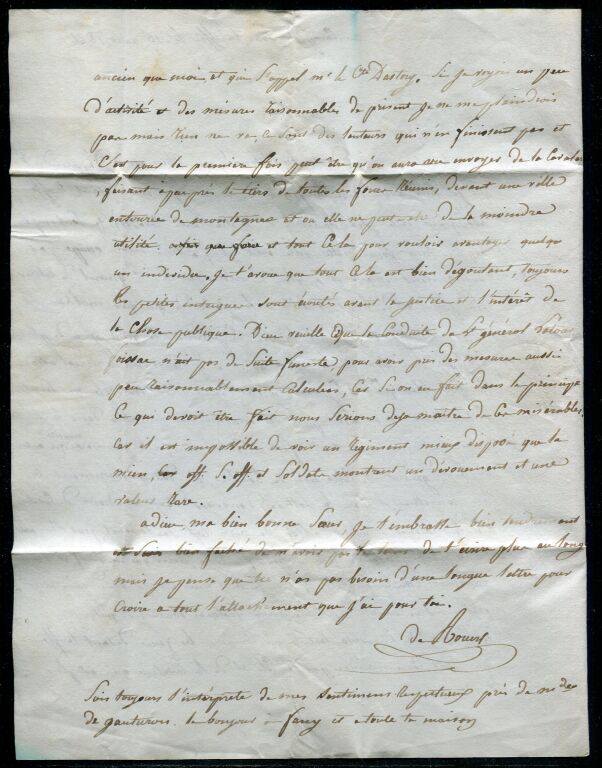 ancien que moi et qui s'appel mr le Cte Dastorg. Si je voyois un peu
d'activité et des mesures raisonnables de prises je ne me plaindrois
pas mais rien ne va, ce sont des lenteurs qui n'en finissent pas et
c'est pour la premiere fois peut être qu'on aura vu envoyer de la
faisant à peu près le tiers de toutes les forces réunies, devant une ville
entourée de montagnes et ou elle ne peut etre de la moindre
utilité et tout cela pour vouloir avantager quelque
un individu. je t'avoue que tout cela est bien dégoutant, toujours
les petites intrigues sont écoutés avant la justice et l'intérêt de
la chose publique. Dieu veuille que la conduite de ce général
n'ait pas de suite funeste pour avoir pris des mesures aussi
peu raisonnablement calculées, car si on eu fait dans le principe
ce qui devoit être fait nous serions deja maitre de ces misérables.
car il est impossible de voir un Regiment mieux disposé que le
mien, off. S. off. et Soldats montrent un dévouement et une
valeur rare.
adieu ma bien bonne Sœur, je t'embrasse bien tendrement
et suis bien faché de n'avoir pas le tems de t'écrire plus au long
mais je pense que tu n'as pas besoin d'une longue lettre pour
croire a tout l'attachement que j'ai pour toi.
de
Sois toujours l'interprète de mes sentimens respectueux près de
de le bonjour a fanny et a toute la maison